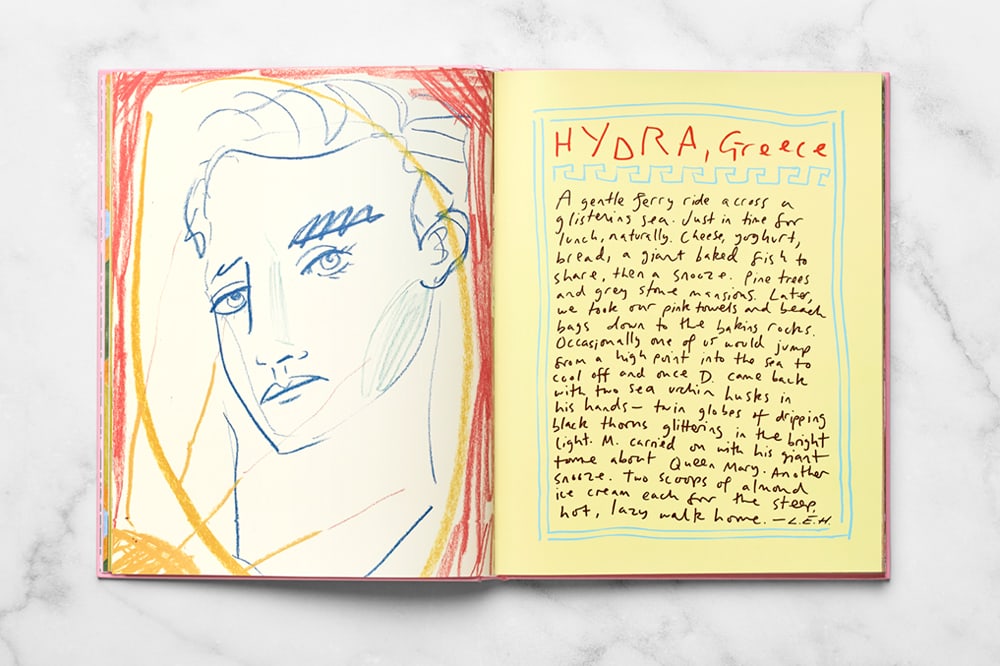 HYDRA, Greece
A gentle ferry ride across a
glistening sea. Just in time for
lunch, naturally. Cheese, yoghurt,
bread, a giant baked fish to
share, then a snooze. Pine trees
and grey stone mansions. Later,
we took our pink towels and beach
bags down to the baking rocks.
Occasionally one of us would jump
from a high point into the sea to
cool off and once D. came back
with two sea urchin husks in
his hands – twin globes of dripping
black thorns glittering in the bright
light. M. carried on with his giant
tome about Queen Mary. Another
snooze. Two scoops of almond
ice cream each for the steep,
hot, lazy walk home. – L.E.H.